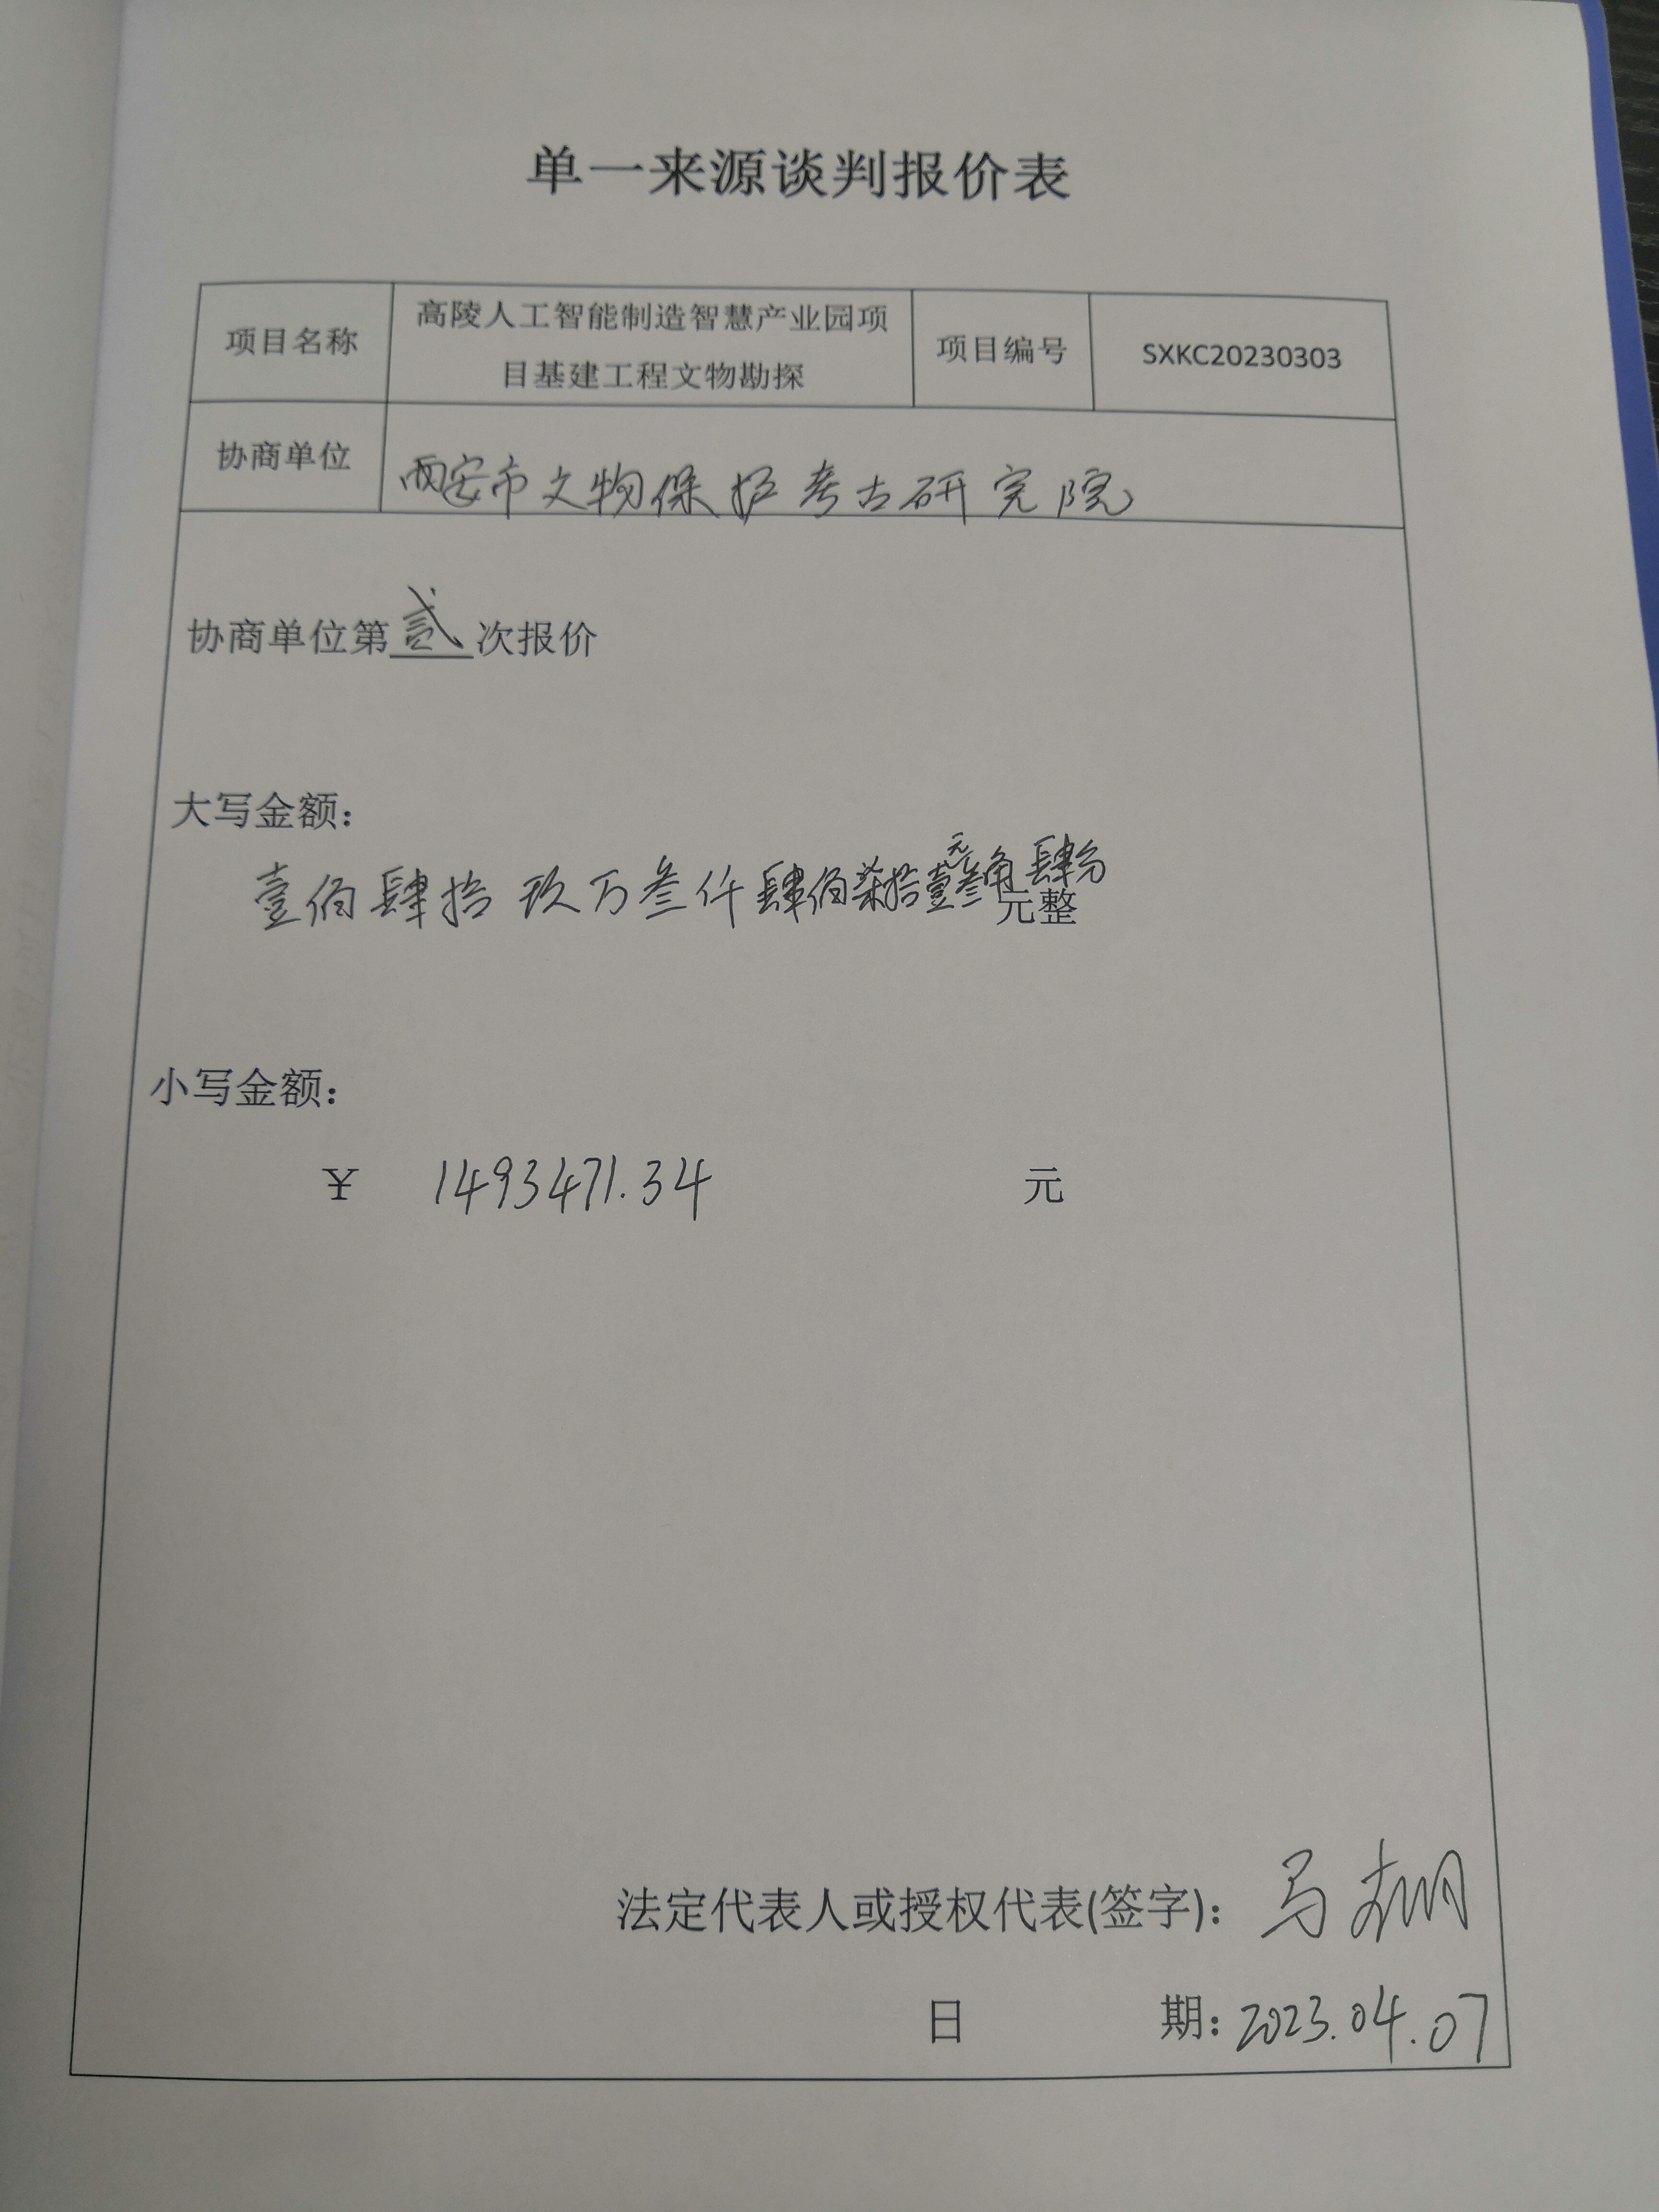 单一来源谈判报价表
项目名称
高陵人工智能制造智慧产业园项
目基建工程文物勘探
项目编号
SXKC20230303
协商单位
西安市文物保护考古研究院
协商单位第贰次报价
大写金额：
壹佰肆拾玖万叁仟肆佰柒拾壹元叁角肆分
元整
小写金额：
¥ 1493471.34 元
法定代表人或授权代表(签字)：马
日 期：2023.04.07